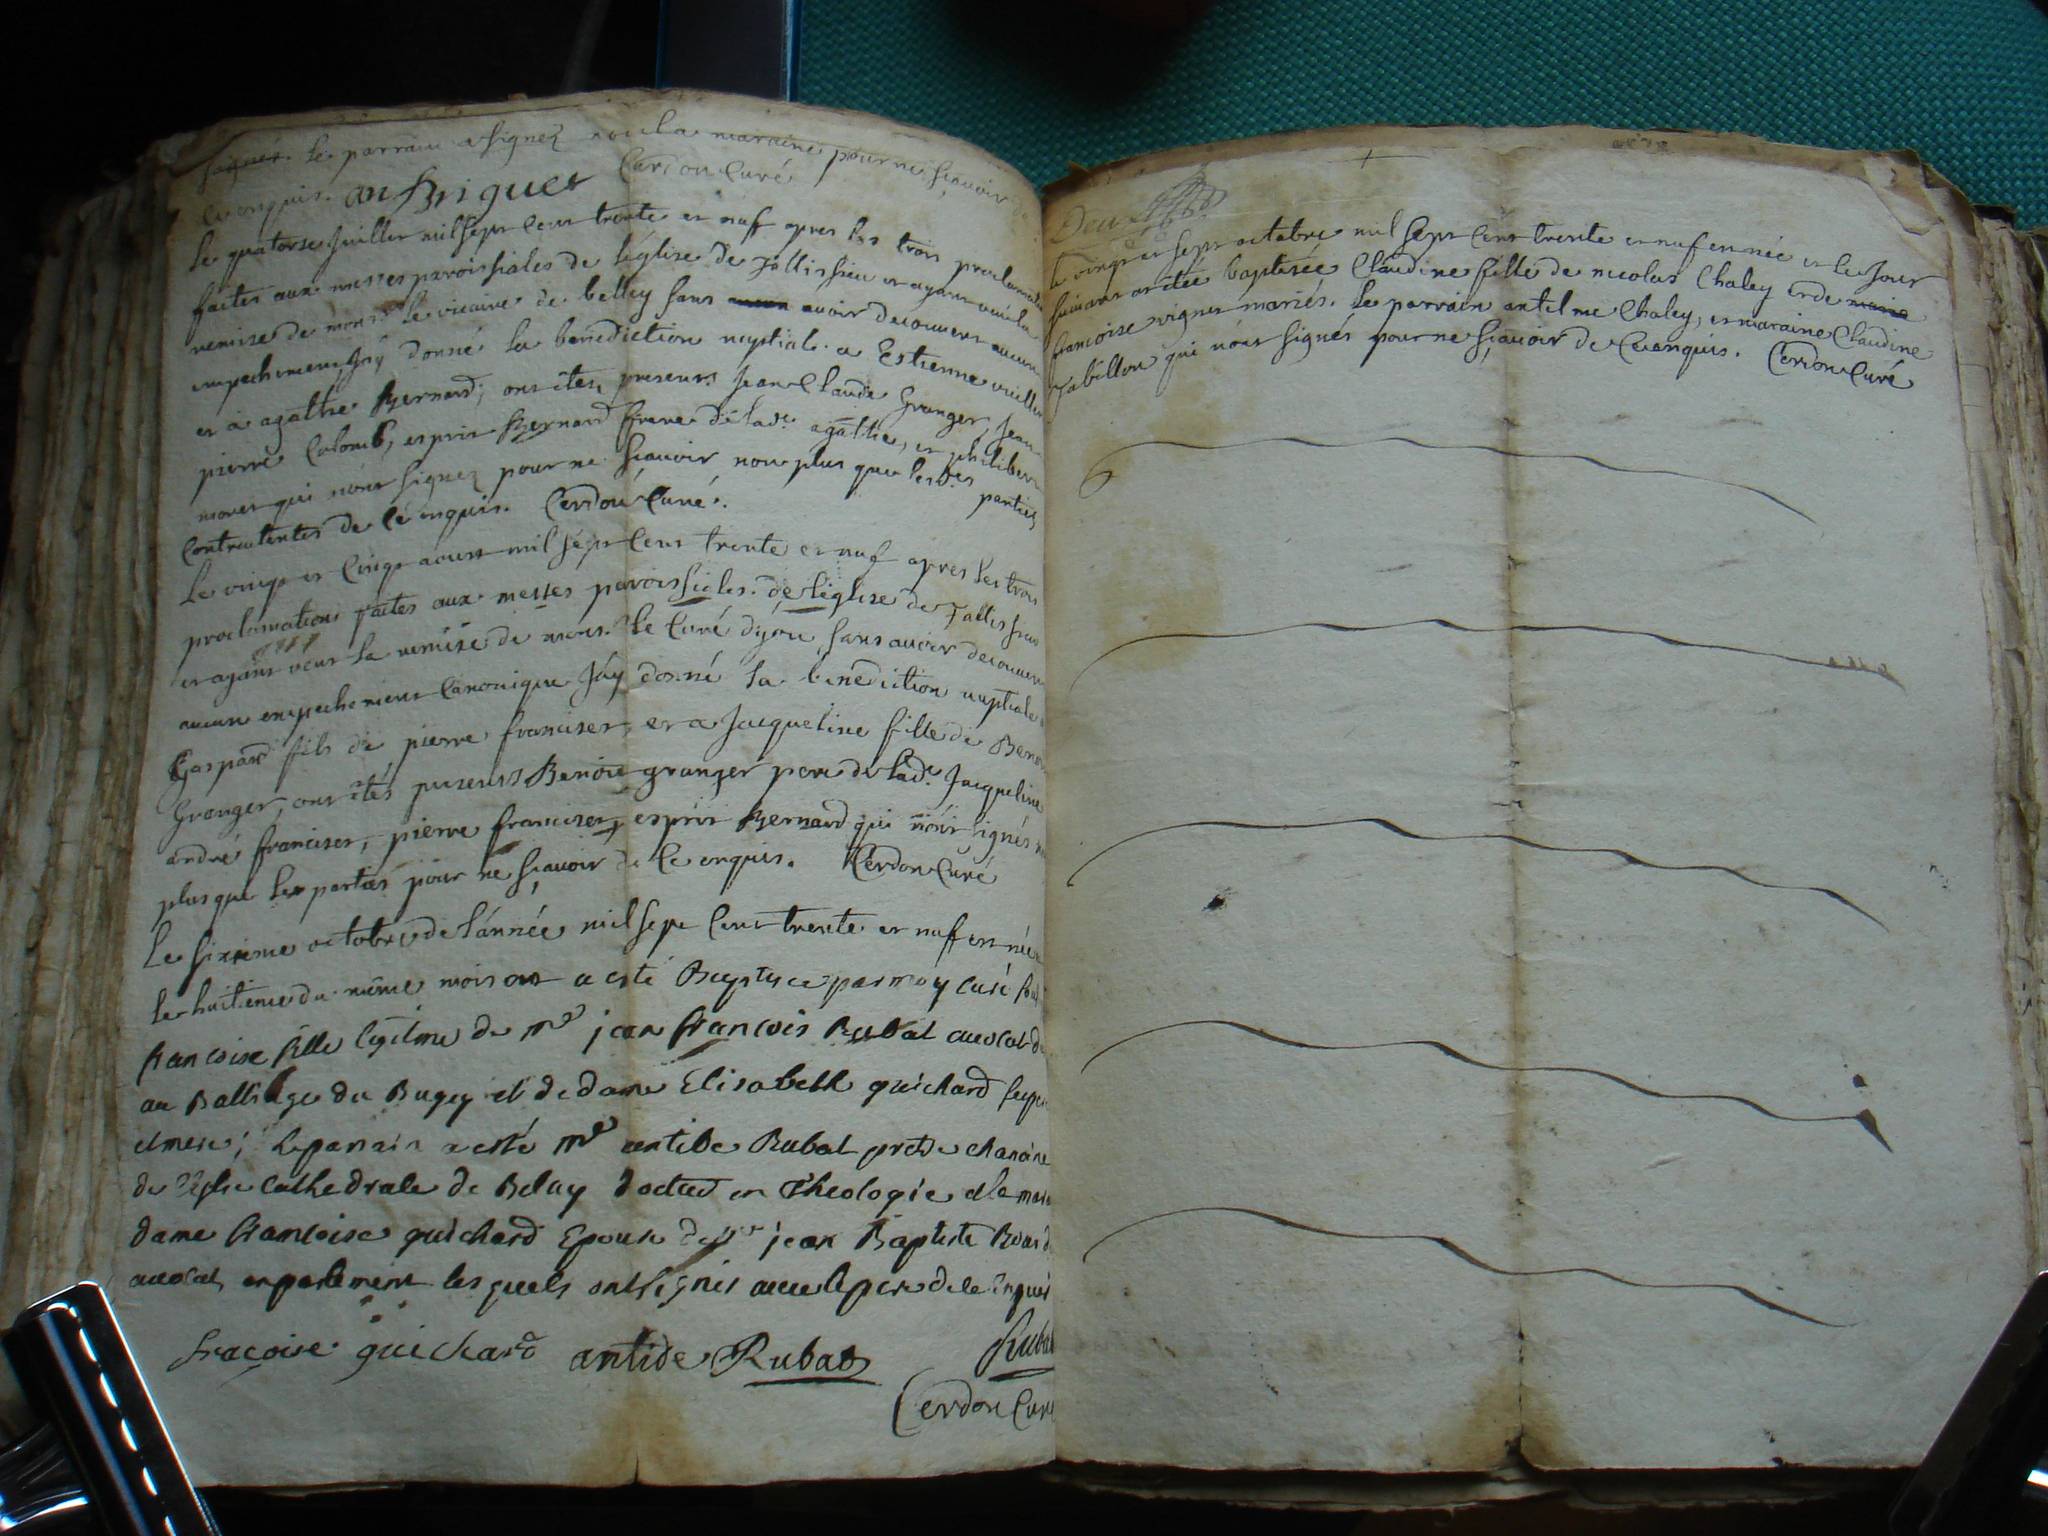 signer. le parrain a signez non la maraine pour ne scavoir de
ce enquis. an Briguet Cerdon Curé
le quatorse Juillet mil sept cent trente et nuf apres les trois proclamations
faites aux messes paroissiales de l'église de Tallissieu et ayant veu la
remise de mons.r le vicaire de belley sans avoir decouvert aucun
empechement, Jay donné la benediction nuptiale a Estienne
et a agathe Bernard; ont étes presens Jean Claude Granger, Jean
pierre Colomb, esprit Bernard frere de lad.e agathe, et philibert
moret qui n'ont signez pour ne scavoir non plus que lesd.es parties
Contractentes de ce enquis. Cerdon Curé.
Le vingt et Cinqt aoust mil sept Cent trente et nuf apres les trois
proclamations faites aux messes paroissiales de l'église de Tallissieu
et ayant veut la remise de mons. le Curé d'yon, sans avoir decouvert
aucun empechement Canonique Jay donné la benediction nuptiale a
Gaspard fils de pierre franciser, et a Jacqueline fille de Benoit
Granger, ont étés presents Benoit granger pere de lad.e Jacqueline
andré franciser, pierre franciser, esprit Bernard qui n'ont signés non
plus que les parties pour ne scavoir de Ce enquis. Cerdon Curé
Le sixieme octobre de l'année mil sept Cent trente et nuf est née et
le huitieme du même mois a esté Baptisee par moy curé
francoise fille legitime de m.e jean francois Rubat avocat
au Balliage du Bugey et de dame Elisabeth guichard ses pere
et mere; le parrain a esté m.e antide Rubat pretre chanoine
de l'Eglise Cathedrale de Belay docteur en Theologie et la maraine
dame francoise guichard Epouse de s.r jean Baptiste
avocat en parlement les quels ont signés avec le pere de ce enquis
fracoise guichard antide Rubat Rubat
Cerdon Curé
le vingt et sept octobre mil sept Cent trente et nuf est née et le Jour
suivant a étée baptisée Claudine fille de nicolas Chaley et de
francoise vignet mariés. le parrain antelme Chaley, et maraine Claudine
Tabillon qui n'ont signés pour ne scavoir de Ce enquis. Cerdon Curé